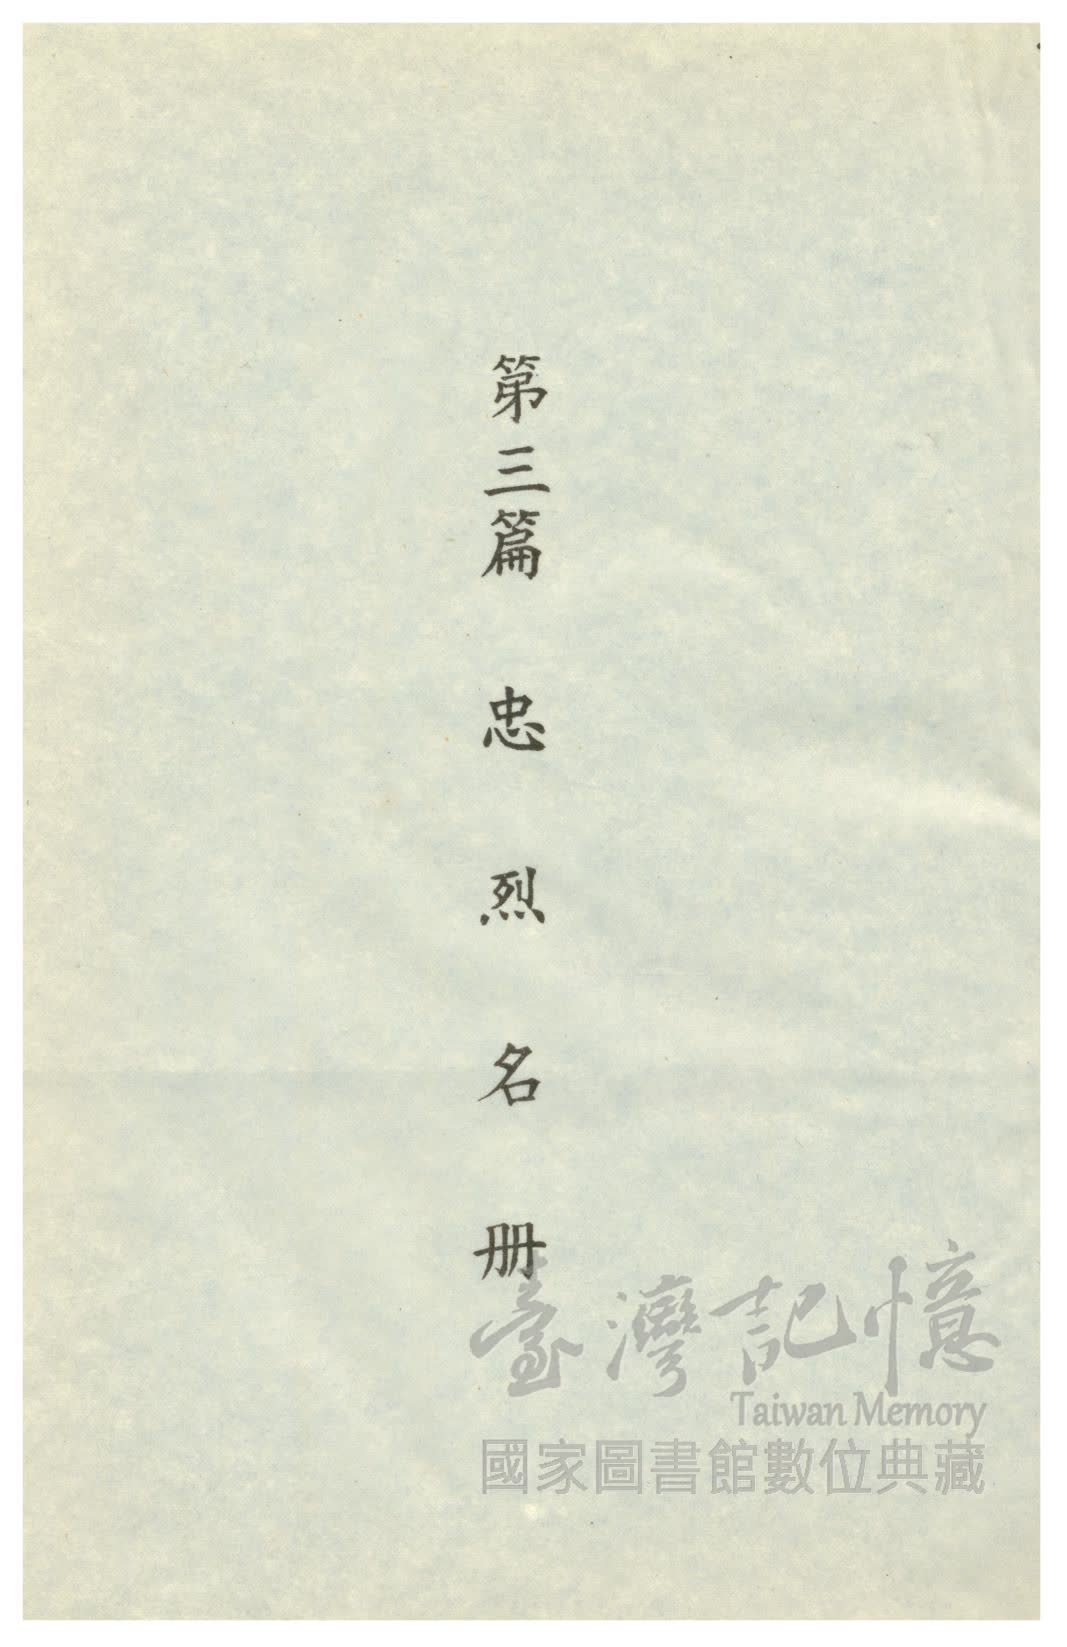 第三篇 忠烈名册
臺灣記憶
Taiwan Memory
國家圖書館數位典藏